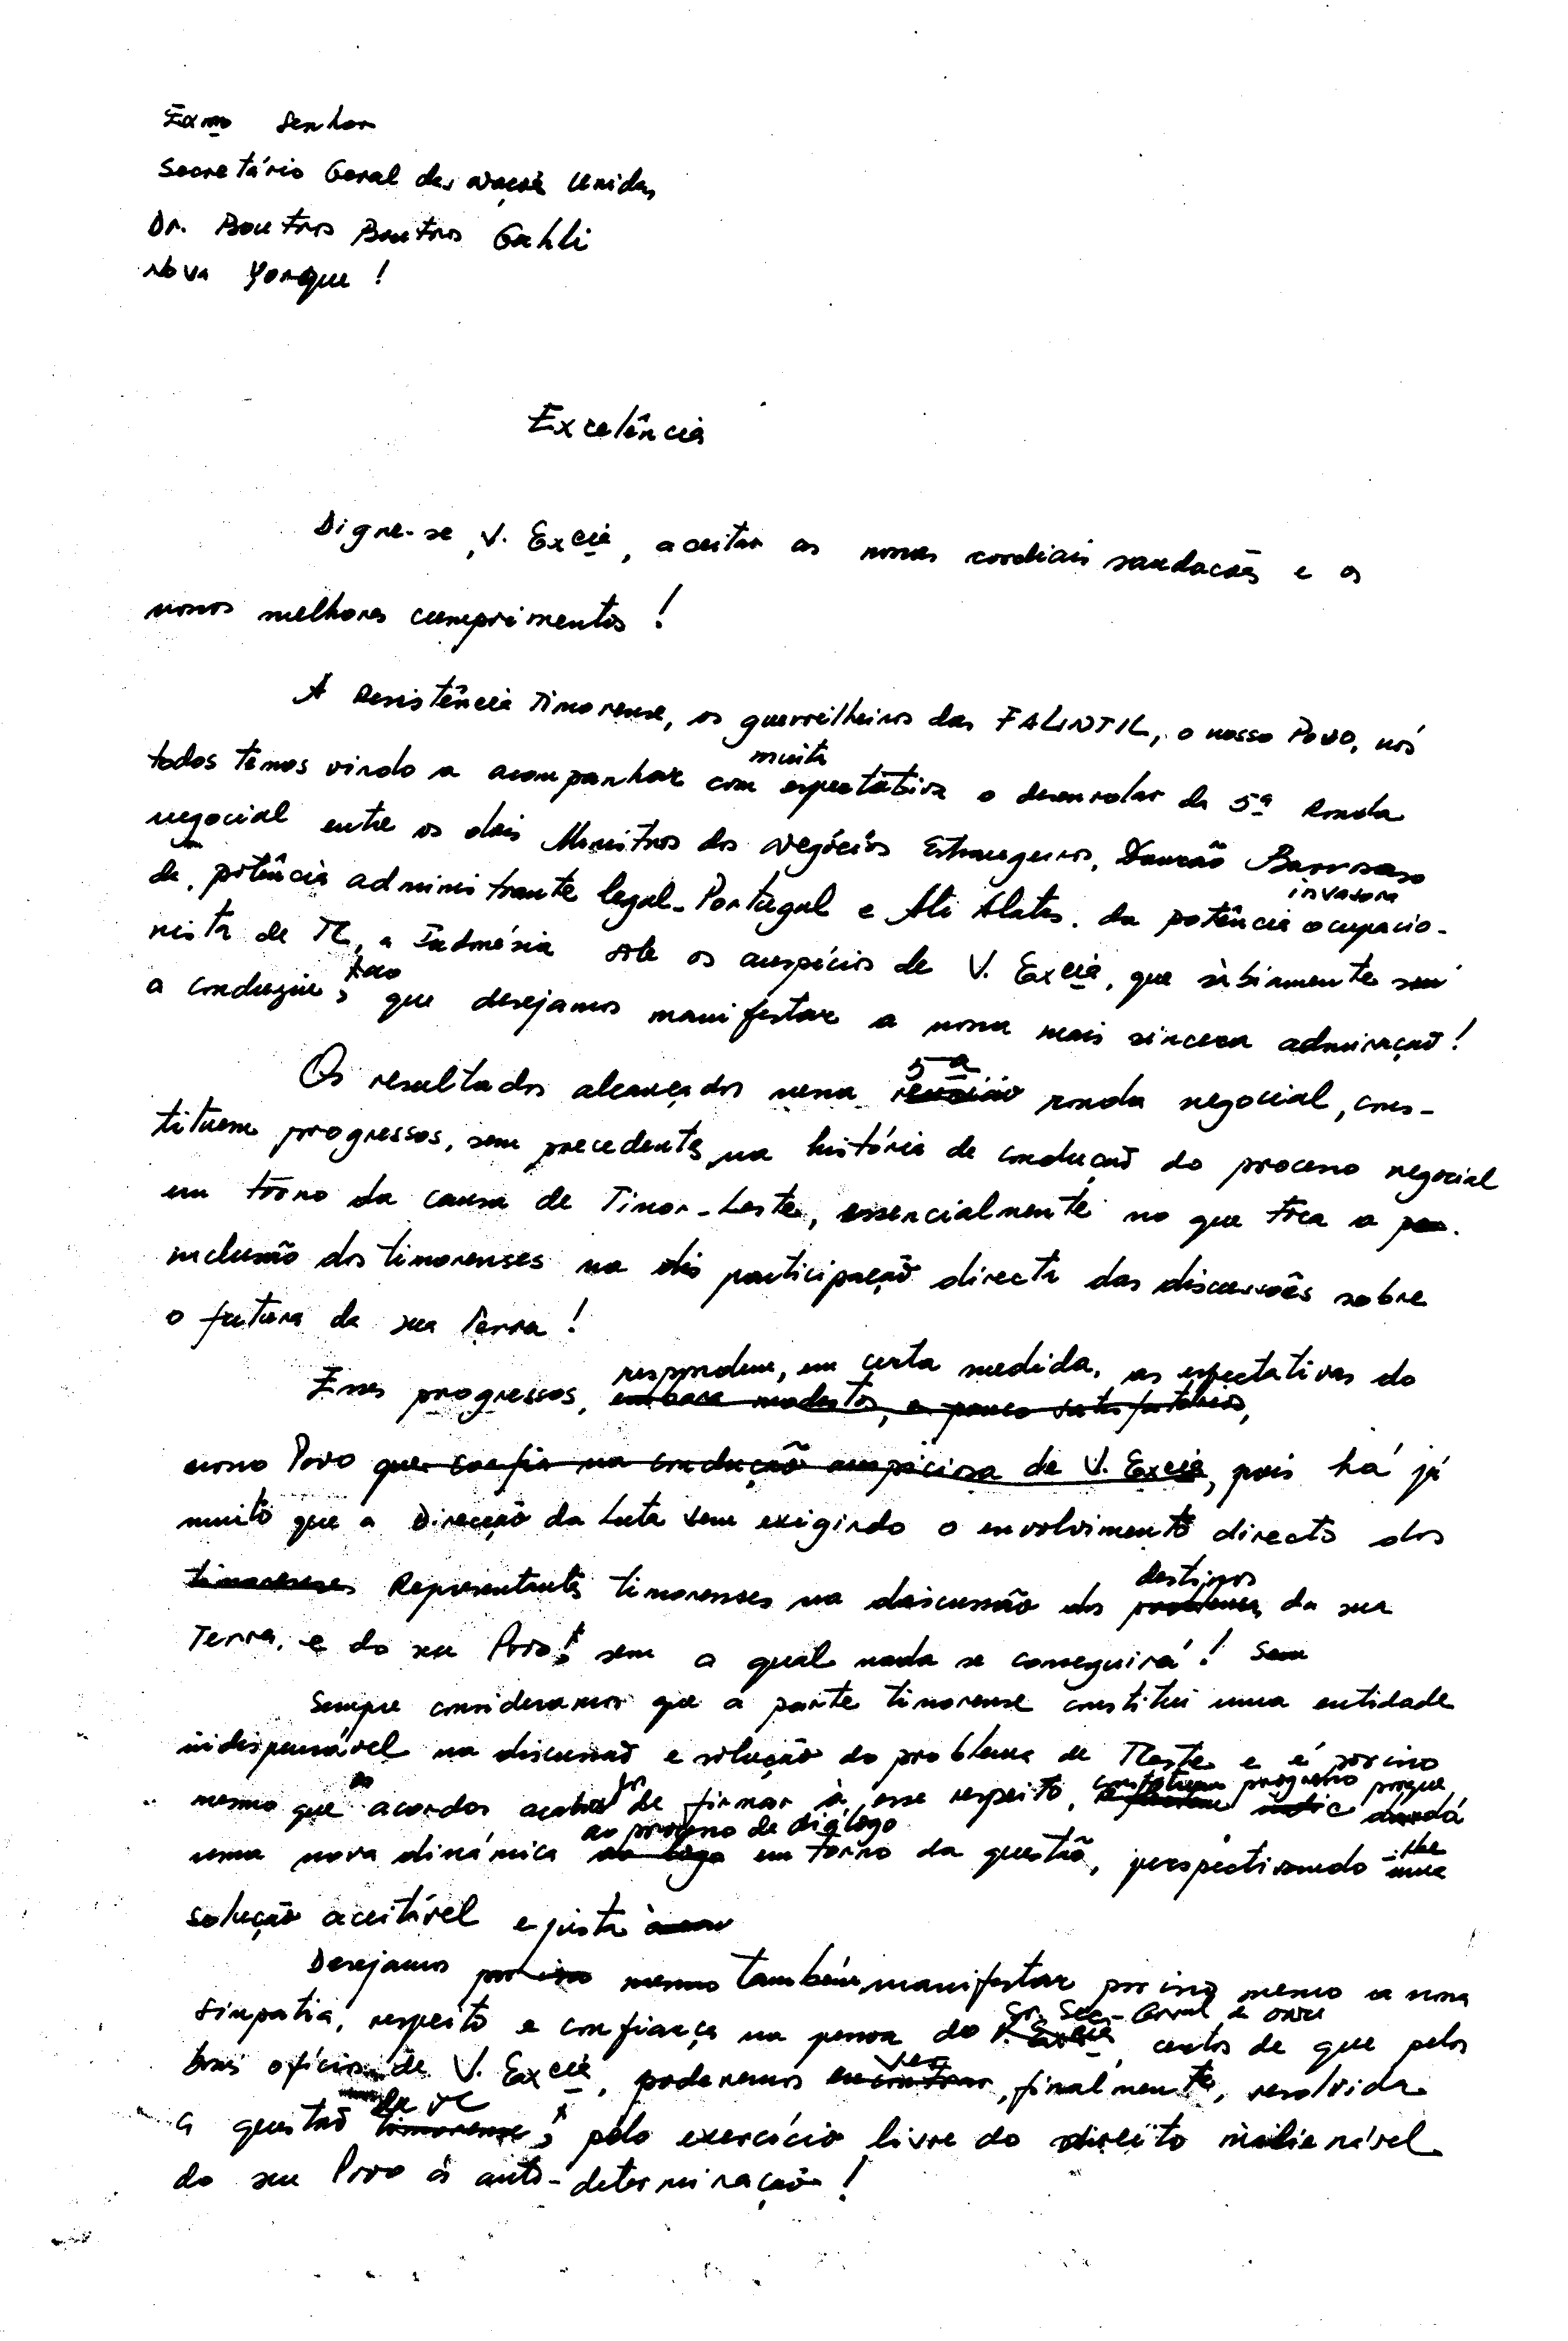 Exmo Senhor
Secretário Geral das Nações Unidas
Dr. Boutros Boutros Gahli
Nova Yorque !
Excelência
Digne-se, V. Excia, aceitar as nossas cordiais saudacões e os
nossos melhores cumprimentos !
A Resistência Timorense, os guerrilheiros das FALINTIL, o nosso Povo, nós
todos temos vindo a acompanhar com muita espectativa o desenrolar da 5ª Ronda
negocial entre os dois Ministros dos Negócios Estrangeiros, Daurão Barroso
da potência administrante legal - Portugal e Ali Alatas, da potência invasora ocupacio-
nista de TL, a Indonésia sob os auspícios de V. Excia, que sàbiamente
a conduziu, que desejamos manifestar a nossa mais sincera admiração !
Os resultados alcançados nessa reunião 5ª ronda negocial, cons-
tituem progressos, sem precedentes, na história de condução do processo negocial
em torno da causa de Timor-Leste, essencialmente no que toca a
inclusão dos timorenses na participação directa das discussões sobre
o futuro da sua Terra !
Esses progressos, respondem, em certa medida, as espectativas do
embora modestos, e pouco satisfatórios,
nosso Povo que confia na condução auspiciosa de V. Excia, pois há já
muito que a Direcção da Luta vem exigindo o envolvimento directo dos
timorenses Representantes timorenses na discussão dos destinos da sua
Terra, e do seu Povo! sem a qual nada se conseguirá ! Sem
Sempre consideramos que a parte timorense constitui uma entidade
indispensável na discussão e solução do problema de TLeste e é por isso
mesmo que os acordos de firmar à esse respeito, constituem progresso porque dá
uma nova dinâmica ao processo de diálogo em torno da questão, perspectivando-lhe uma
solução aceitável e justa
Desejamos por isso mesmo também, manifestar por isso mesmo a nossa
simpatia, respeito e confiança na pessoa do V. Excia Sr. Sec-Geral da ONU certos de que pelos
bons ofícios de V. Excia, poderemos encontrar ver, finalmente, resolvida
a questão timorense de TL, pelo exercício livre do direito inalienável
do seu Povo à auto-determinação !